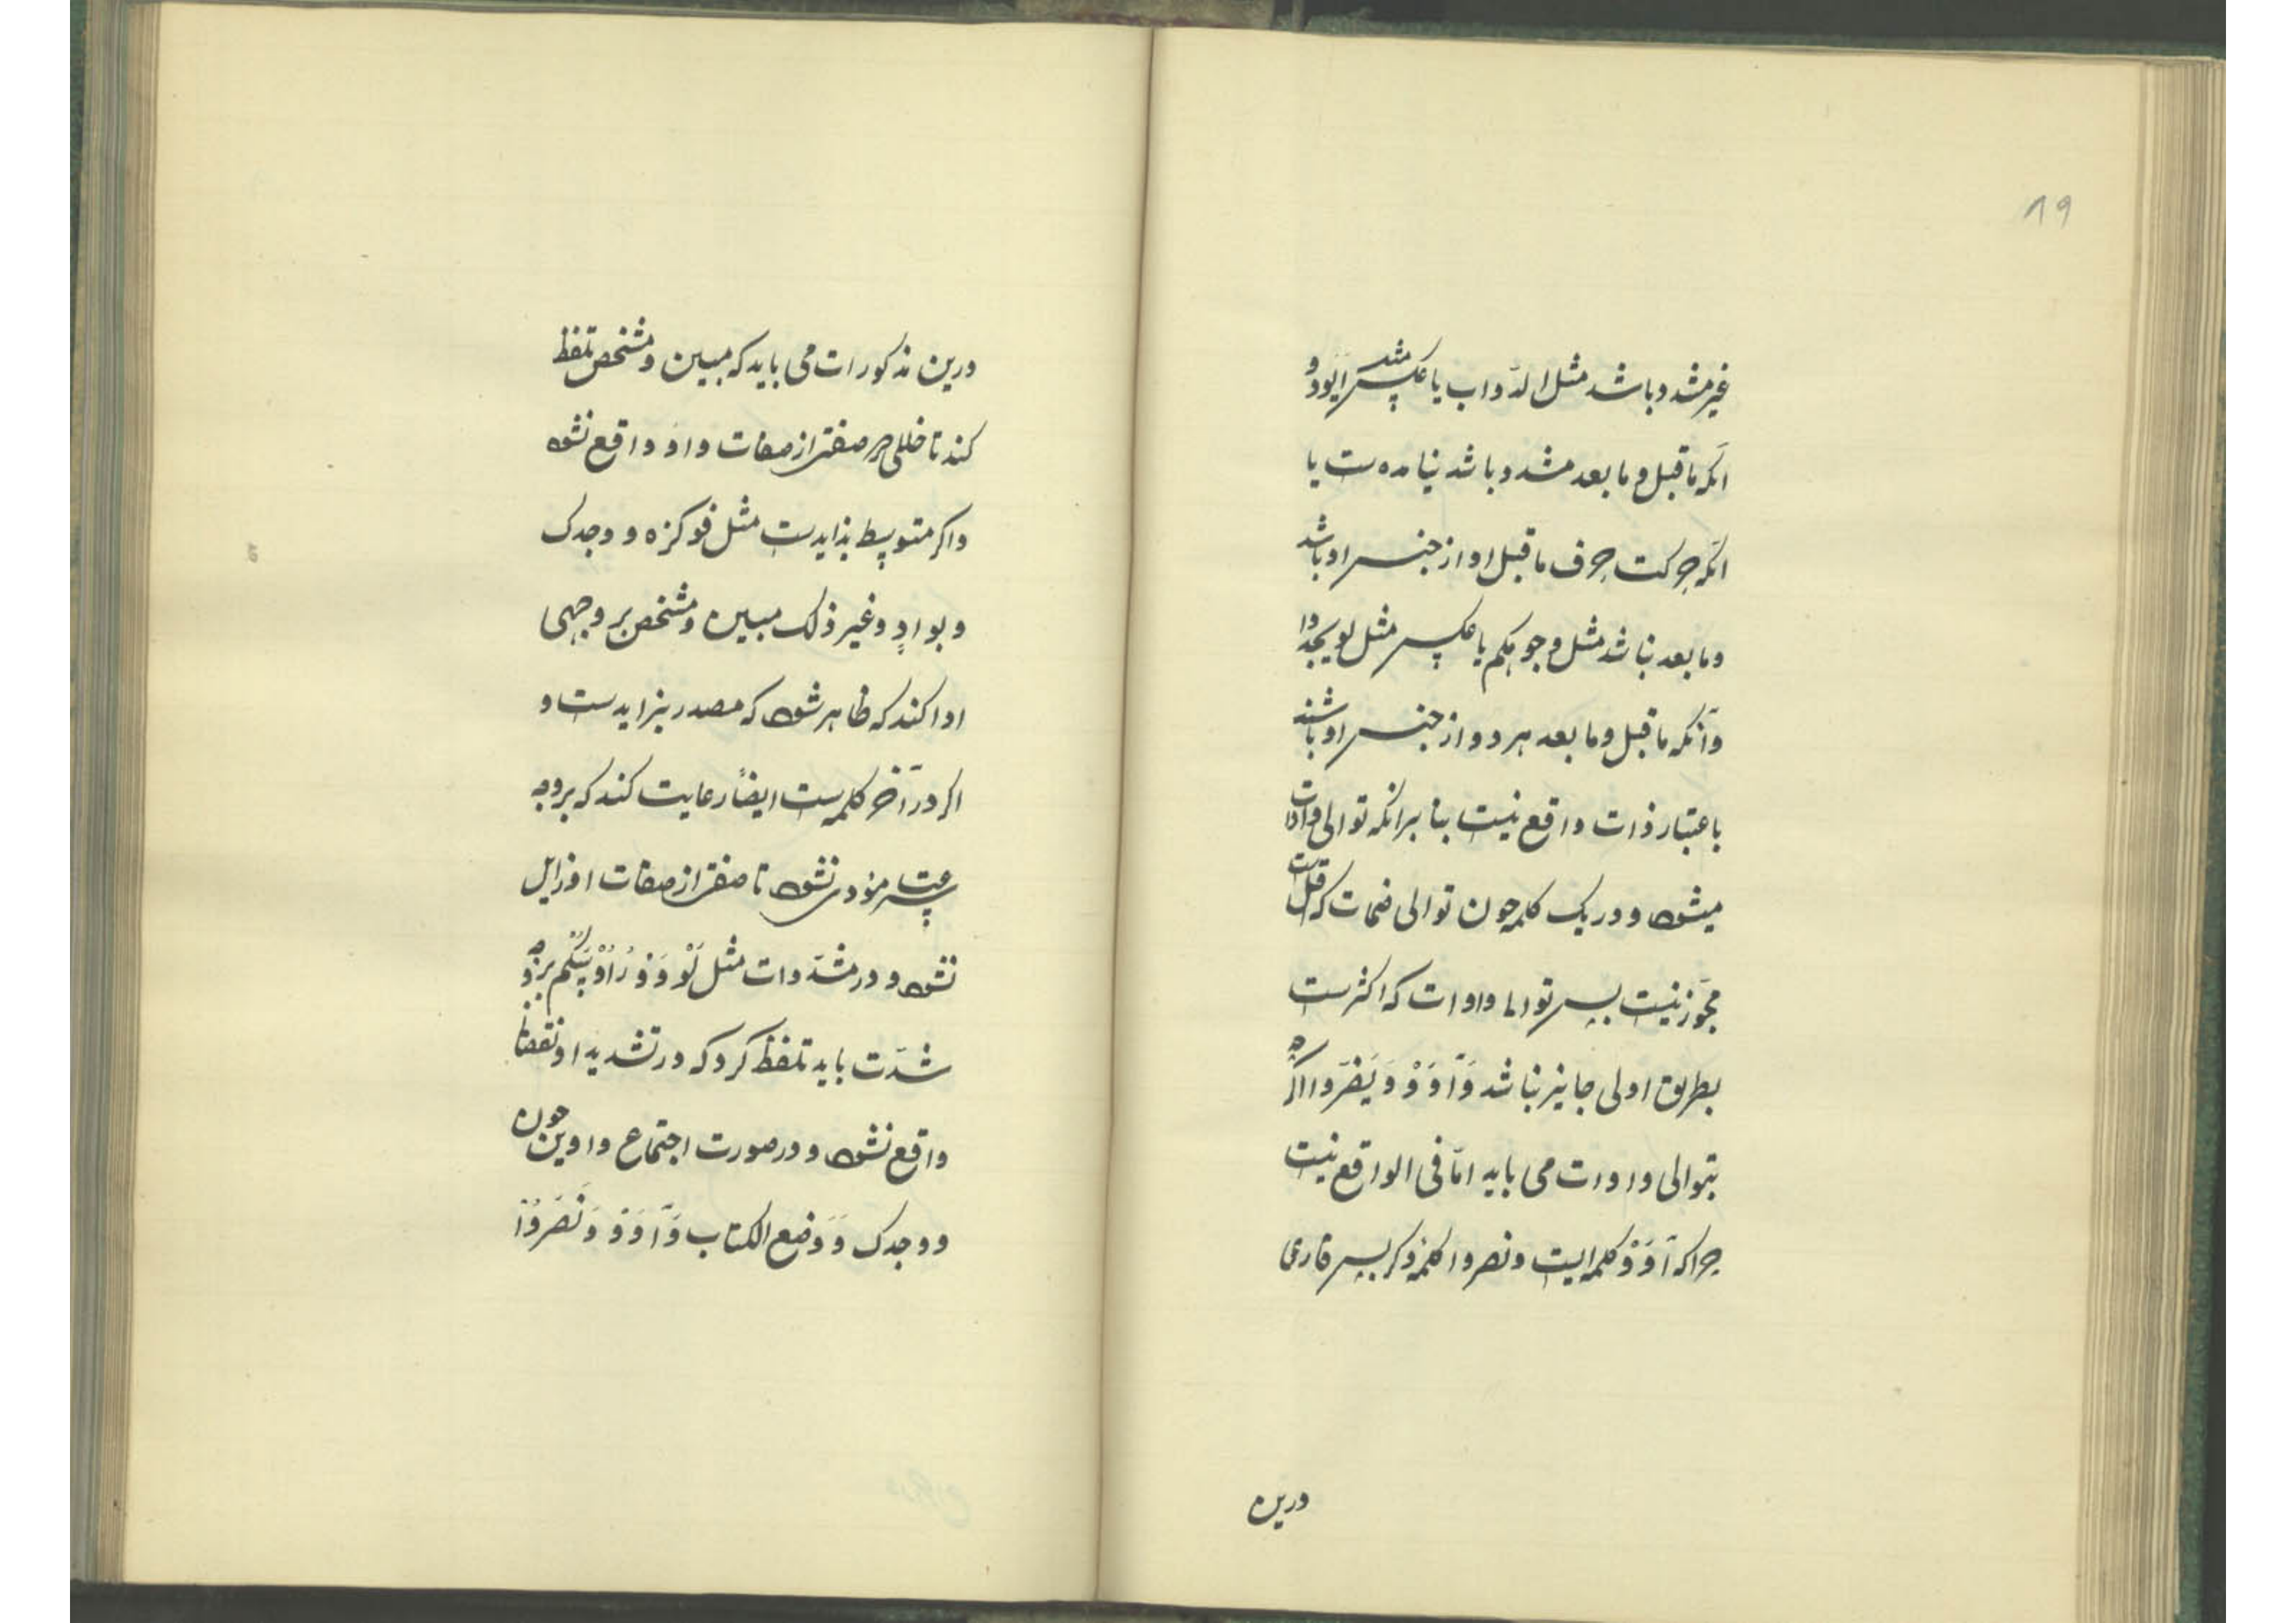 19
غیر مشدد باشد مثل الدّواب یا عکس مثل ایودّ و
آنکه ماقبل و مابعد مشدد باشد نیامده ست یا
آنکه حرکت حرف ماقبل او از جنس او باشد
و مابعد نباشد مثل وجوهکم یا عکس مثل لو یجدوا
و آنکه ماقبل و مابعد هر دو از جنس او باشند
باعتبار ذات واقع نیست بنا برانکه توالی واوات
میشود و در یک کلمه چون توالی ضمات که قلّ ست
مجوّز نیست پس توالی واوات که اکثرست
بطریق اولی جایز نباشد وَآوَوْ وَنَصَرُوا اگرچه
بتوالی واوات می باید امّا فی الواقع نیست
چرا که آوَوْ کلمه ایست و نصروا کلمهٔ دکر پس قاری
درین
درین مذکورات می باید که مبین و مشخص تلفظ
کند تا خللی در صفتی از صفات واو واقع نشود
واکر متوسط بذایدست مثل فوکزه و وجدک
و بوادٍ و غیر ذلک مبین و مشخص بر وجهی
ادا کند که ظاهر شود که مصدر بزایدست و
اکر در آخر کلمه ست ایضاً رعایت کند که بر وجه
سرعت مؤدی نشود تا صفتی از صفات او زایل
نشود و در مشدّدات مثل لَوَّوْا رُءُوسَهُم بر وجه
شدّت باید تلفظ کرد که در تشدید او نقصانی
واقع نشود و در صورت اجتماع واوین چون
ووجدک وَوُضع الکتاب وَآوَوْ وَنَصَرُوْا